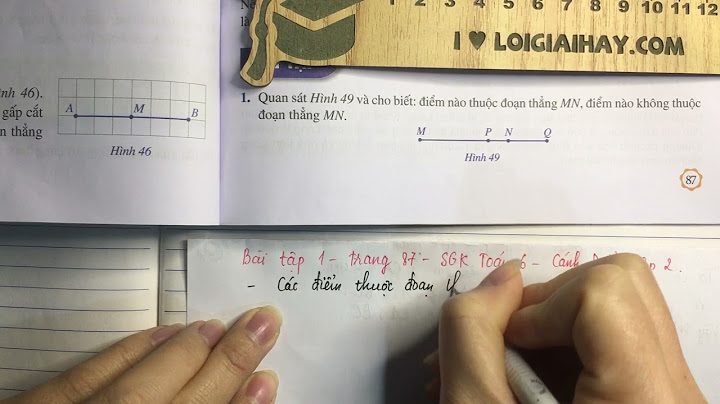 1 2 3 4 5 6 7 8 9 10 11 12
I ♥ LOIGIAIHAY.COM
nh 46).
gấp cắt
n thẳng
A M B
Hình 46
1. Quan sát Hình 49 và cho biết: điểm nào thuộc đoạn thẳng MN, điểm nào không thuộc
đoạn thẳng MN.
M P N Q
Hình 49
87
Bài tập 1 - trang 87 - SGK Toán 6 - Cánh 2.
- Các điểm thuộc đoạn th